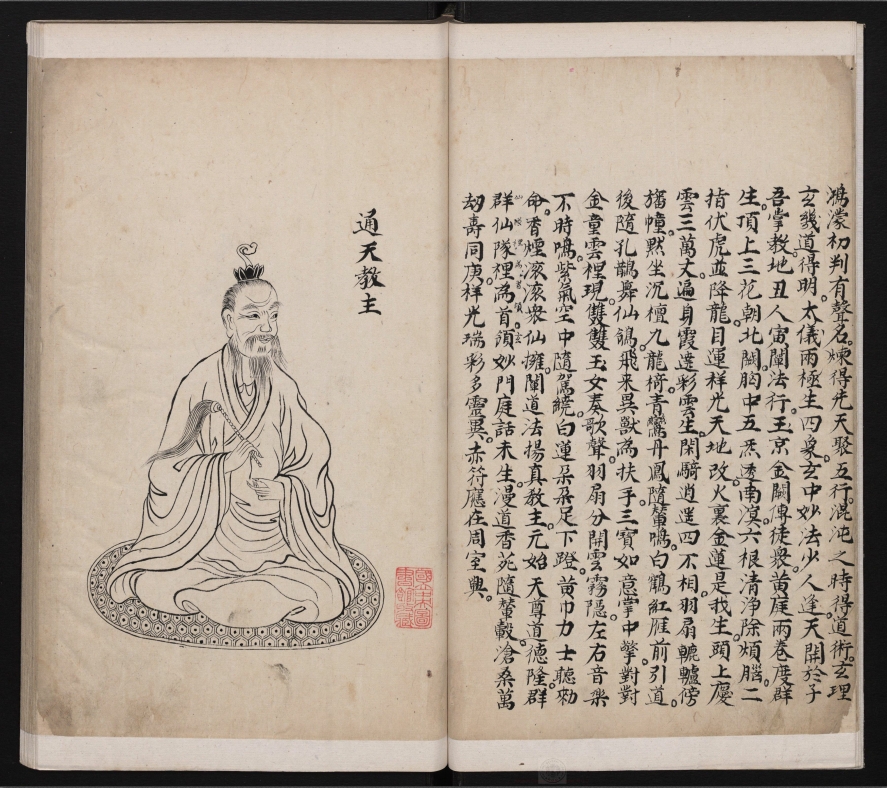 鴻濛初判有聲名。煉得先天聚五行。混沌之時得道術。玄理
玄幾道得明。太儀兩極生四象。玄中妙法少人逢天開於子
吾掌教。地丑人寅闡法行。玉京金闕傳徒衆。黃庭兩卷度群
生。頂上三花朝北闕。胸中五炁透南溟。六根清淨除煩腦。二
指伏虎並降龍。目運祥光天地改。火裏金蓮是我生。頭上慶
雲三萬丈。遍身霞遶彩雲生。閑騎逍遥四不相。羽扇轆轤傍
旛幢。默坐沉檀九龍椅。青鸞丹鳳隨輦鳴。白鶴紅雁前引道
後隨孔鵲舞仙鴿。飛来異獸為扶手。三寳如意掌中擎。對對
金童雲裡現。雙雙玉女奏歌聲。羽扇分開雲霧隱。左右音樂
不時鳴。紫氣空中隨駕繞。白蓮朵朵足下蹬。黃巾力士聽勅
命。香煙滚滚衆仙擁。闡道法揚真教主。元始天尊道德隆。群
群仙隊裡為首領。妙門庭話未生。漫道香苑隨輦轂。滄桑萬
劫壽同庚。祥光瑞彩多靈異。赤符應在周室興。
通天教主